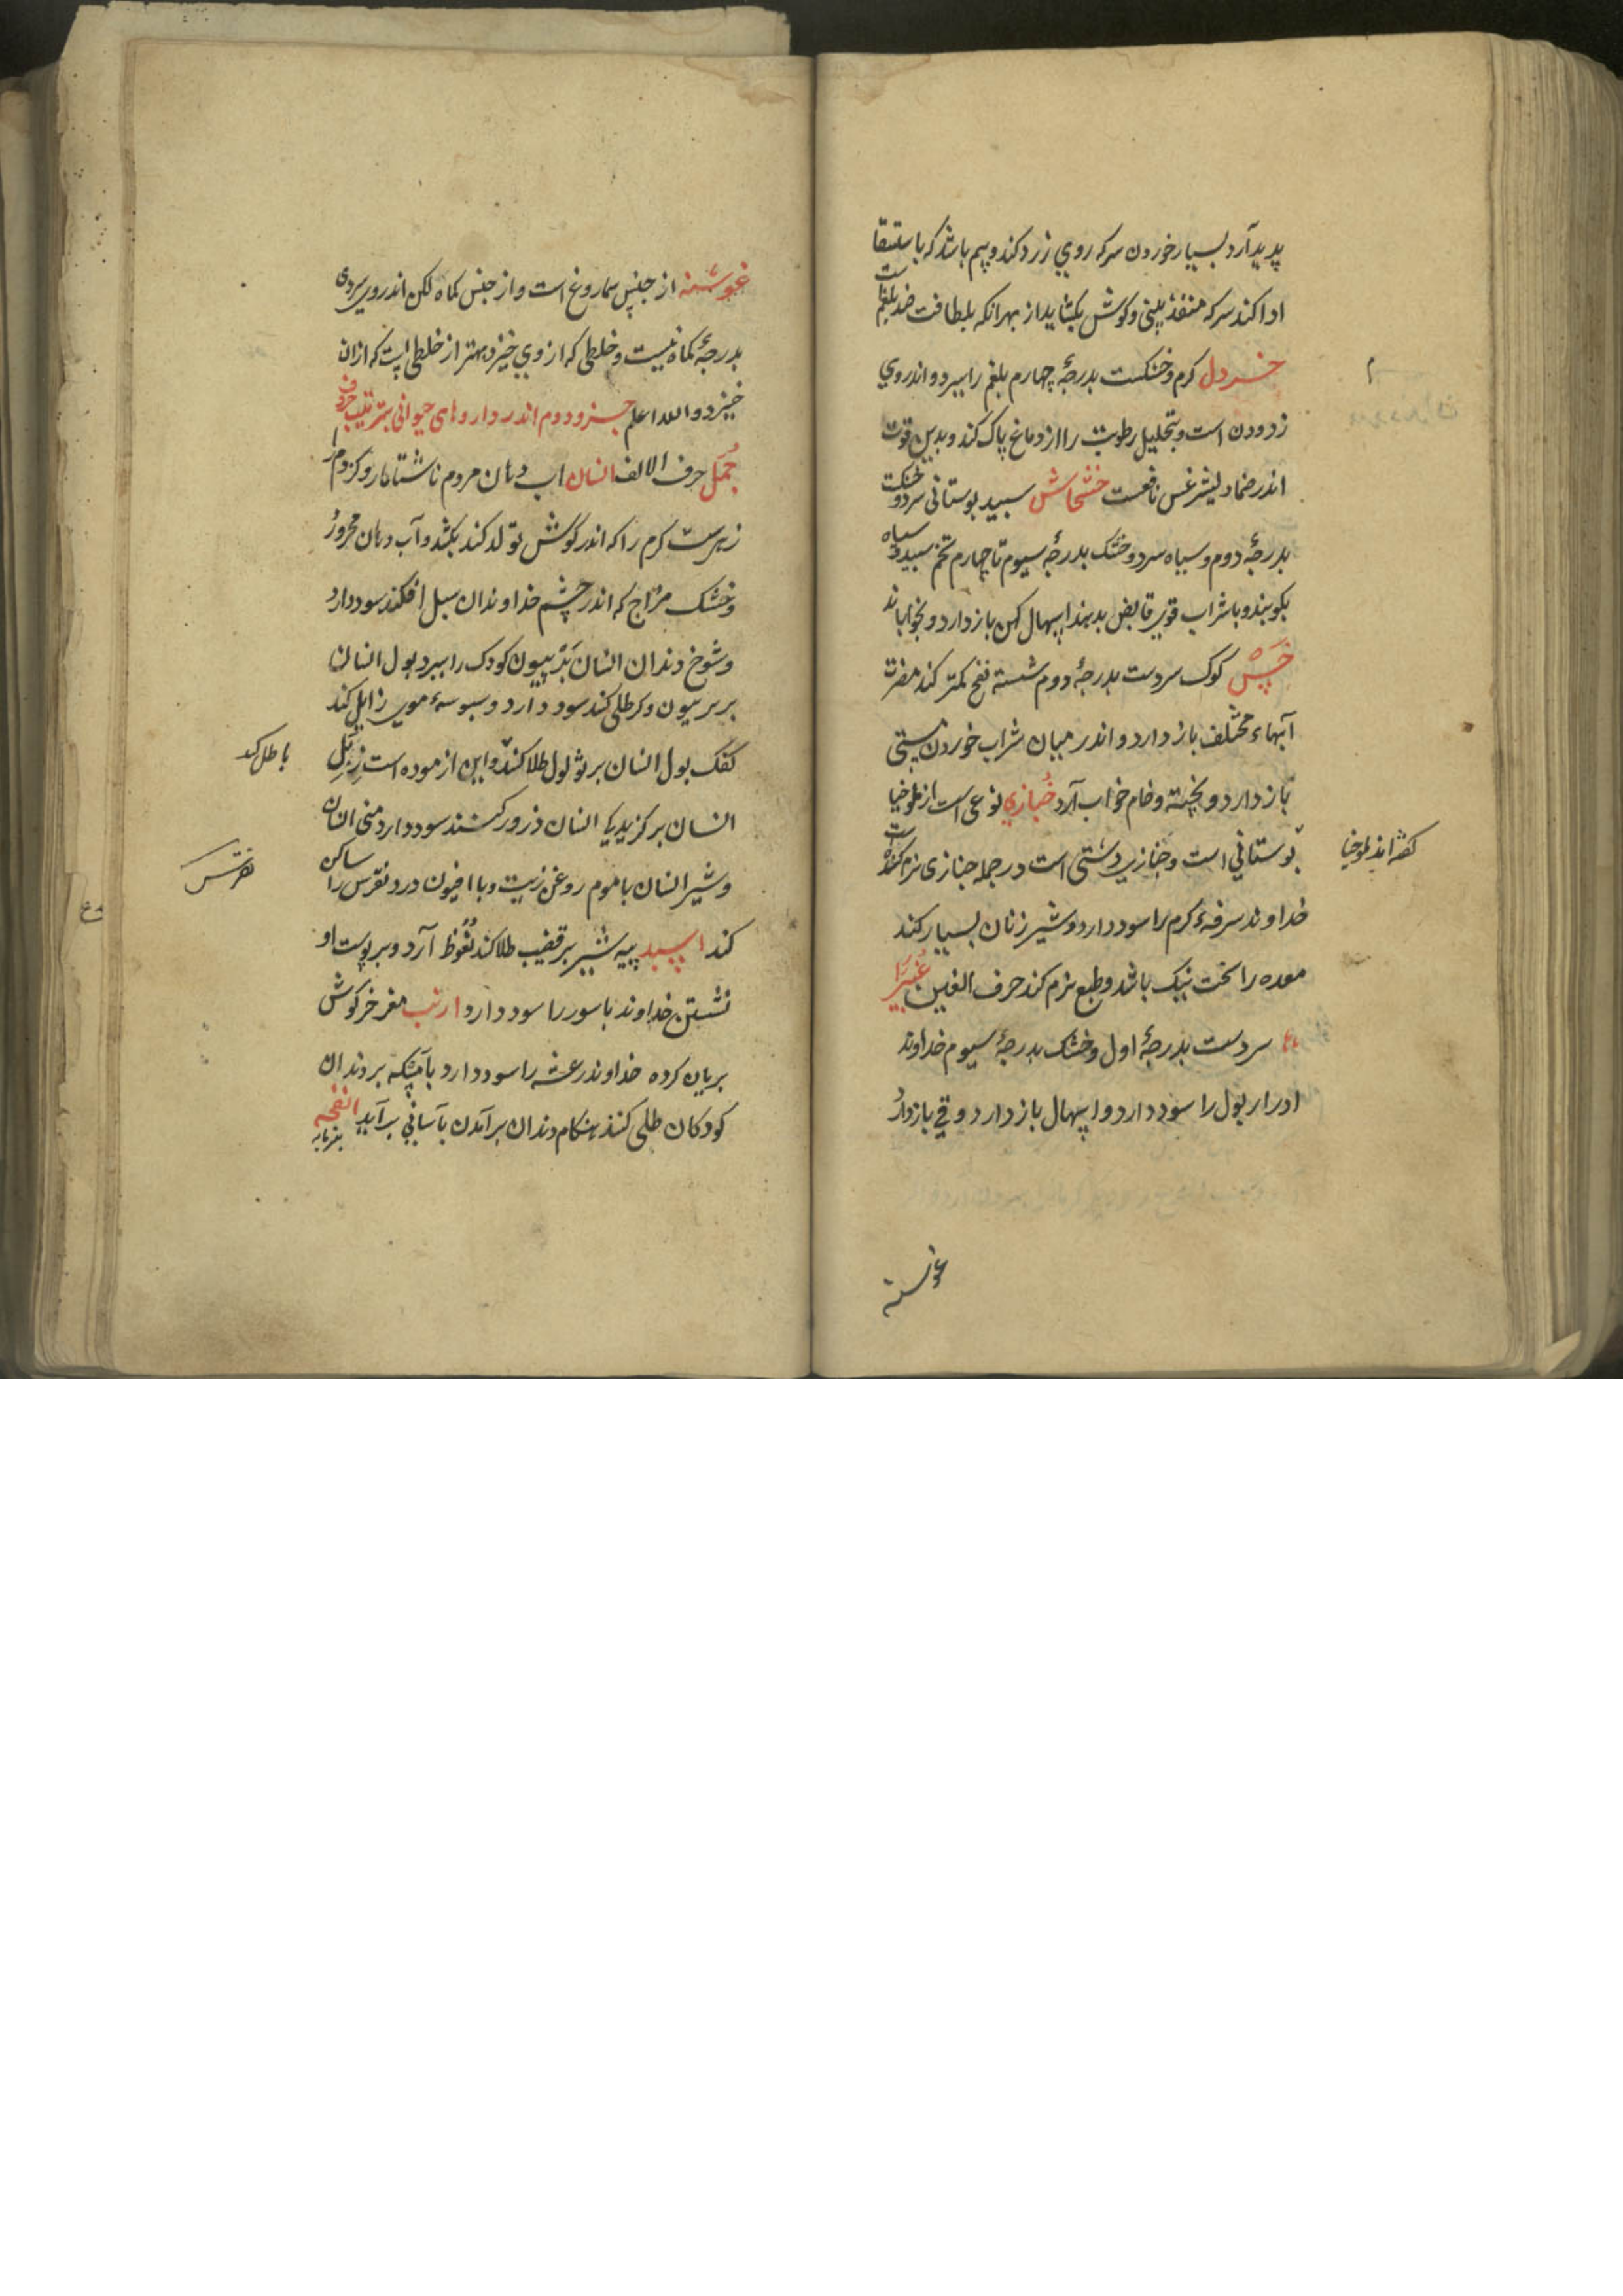 پدید آرد بسیار خوردن سرکه روی زرد کند و بیم باشد که باستسقا
ادا کند سرکه منفذ بینی و کوش بکشاید از بهر انکه بلطافت ضد بلغم است
خردل کرم و خشکست بدرجهٔ چهارم بلغم را ببرد و اندر وی
زدودن است و تحلیل رطوبت را از دماغ پاک کند و بدین قوت
اندر ضماد لیثرغس نافعست خشخاش سبید بوستانی سرد و خشکت
بدرجهٔ دوم و سیاه سرد و خشک بدرجهٔ سیوم تا چهارم تخم سبید و سیاه
بکوبند و با شراب قوی قابض بدهند اسهال کهن باز دارد و بخواباند
خس کوک سردست بدرجهٔ دوم شسته نفخ کمتر کند مضرت
آبهاء مختلف باز دارد و اندر میان شراب خوردن مستی
باز دارد و پخته و خام خواب آرد خبازی نوعی است از ملوخیا
کفته اند ملوخیا
بوستانی است و خبازی دشتی است در جمله خبازی نرم کننده است
خداوند سرفهٔ کرم را سود دارد و شیر زنان بسیار کند
معده را سخت نیک باشد و طبع نرم کند حرف الغین غبیرا
سردست بدرجهٔ اول و خشک بدرجهٔ سیوم خداوند
ادرار بول را سود دارد و اسهال باز دارد و قی باز دارد
غوشنه
غوشنه از جنس سماروغ است و از جنس کماه لکن اندر وی سردی
بدرجهٔ کماه نیست و خلطی که از وی خیزد بهتر از خلطی است که ازان
خیزد و الله اعلم جزو دوم اندر داروهای حیوانی بترتیب حروف
جمل حرف الالف انسان اب دهان مردم ناشتا مار و کزدم را
زهرست کرم را که اندر کوش تولد کند بکشد و آب دهان محرور
و خشک مزاج که اندر چشم خداوندان سبل افکند سود دارد
و شوخ دندان انسان بثر پیون کودک را ببرد بول انسان
بر بر پیون و کر طلی کند سود دارد و سبوسهٔ موی زایل کند
کفک بول انسان بر ثولول طلا کنند و این ازموده است زبل
باطل کند
انسان بر کزیدیکی انسان ذرور کنند سود دارد منی انسان
و شیر انسان با موم روغن زیت و با افیون درد نقرس را ساکن
نقرس
کند اسد پیه شیر بر قضیب طلا کند نعوظ آرد و بر پوست او
نشستن خداوند باسور را سود دارد ارنب مغز خرکوش
بریان کرده خداوند رعشه را سود دارد با مسکه بر دندان
کودکان طلی کنند هنکام دندان برآمدن بآسانی برآید انفحه پنیرمایه